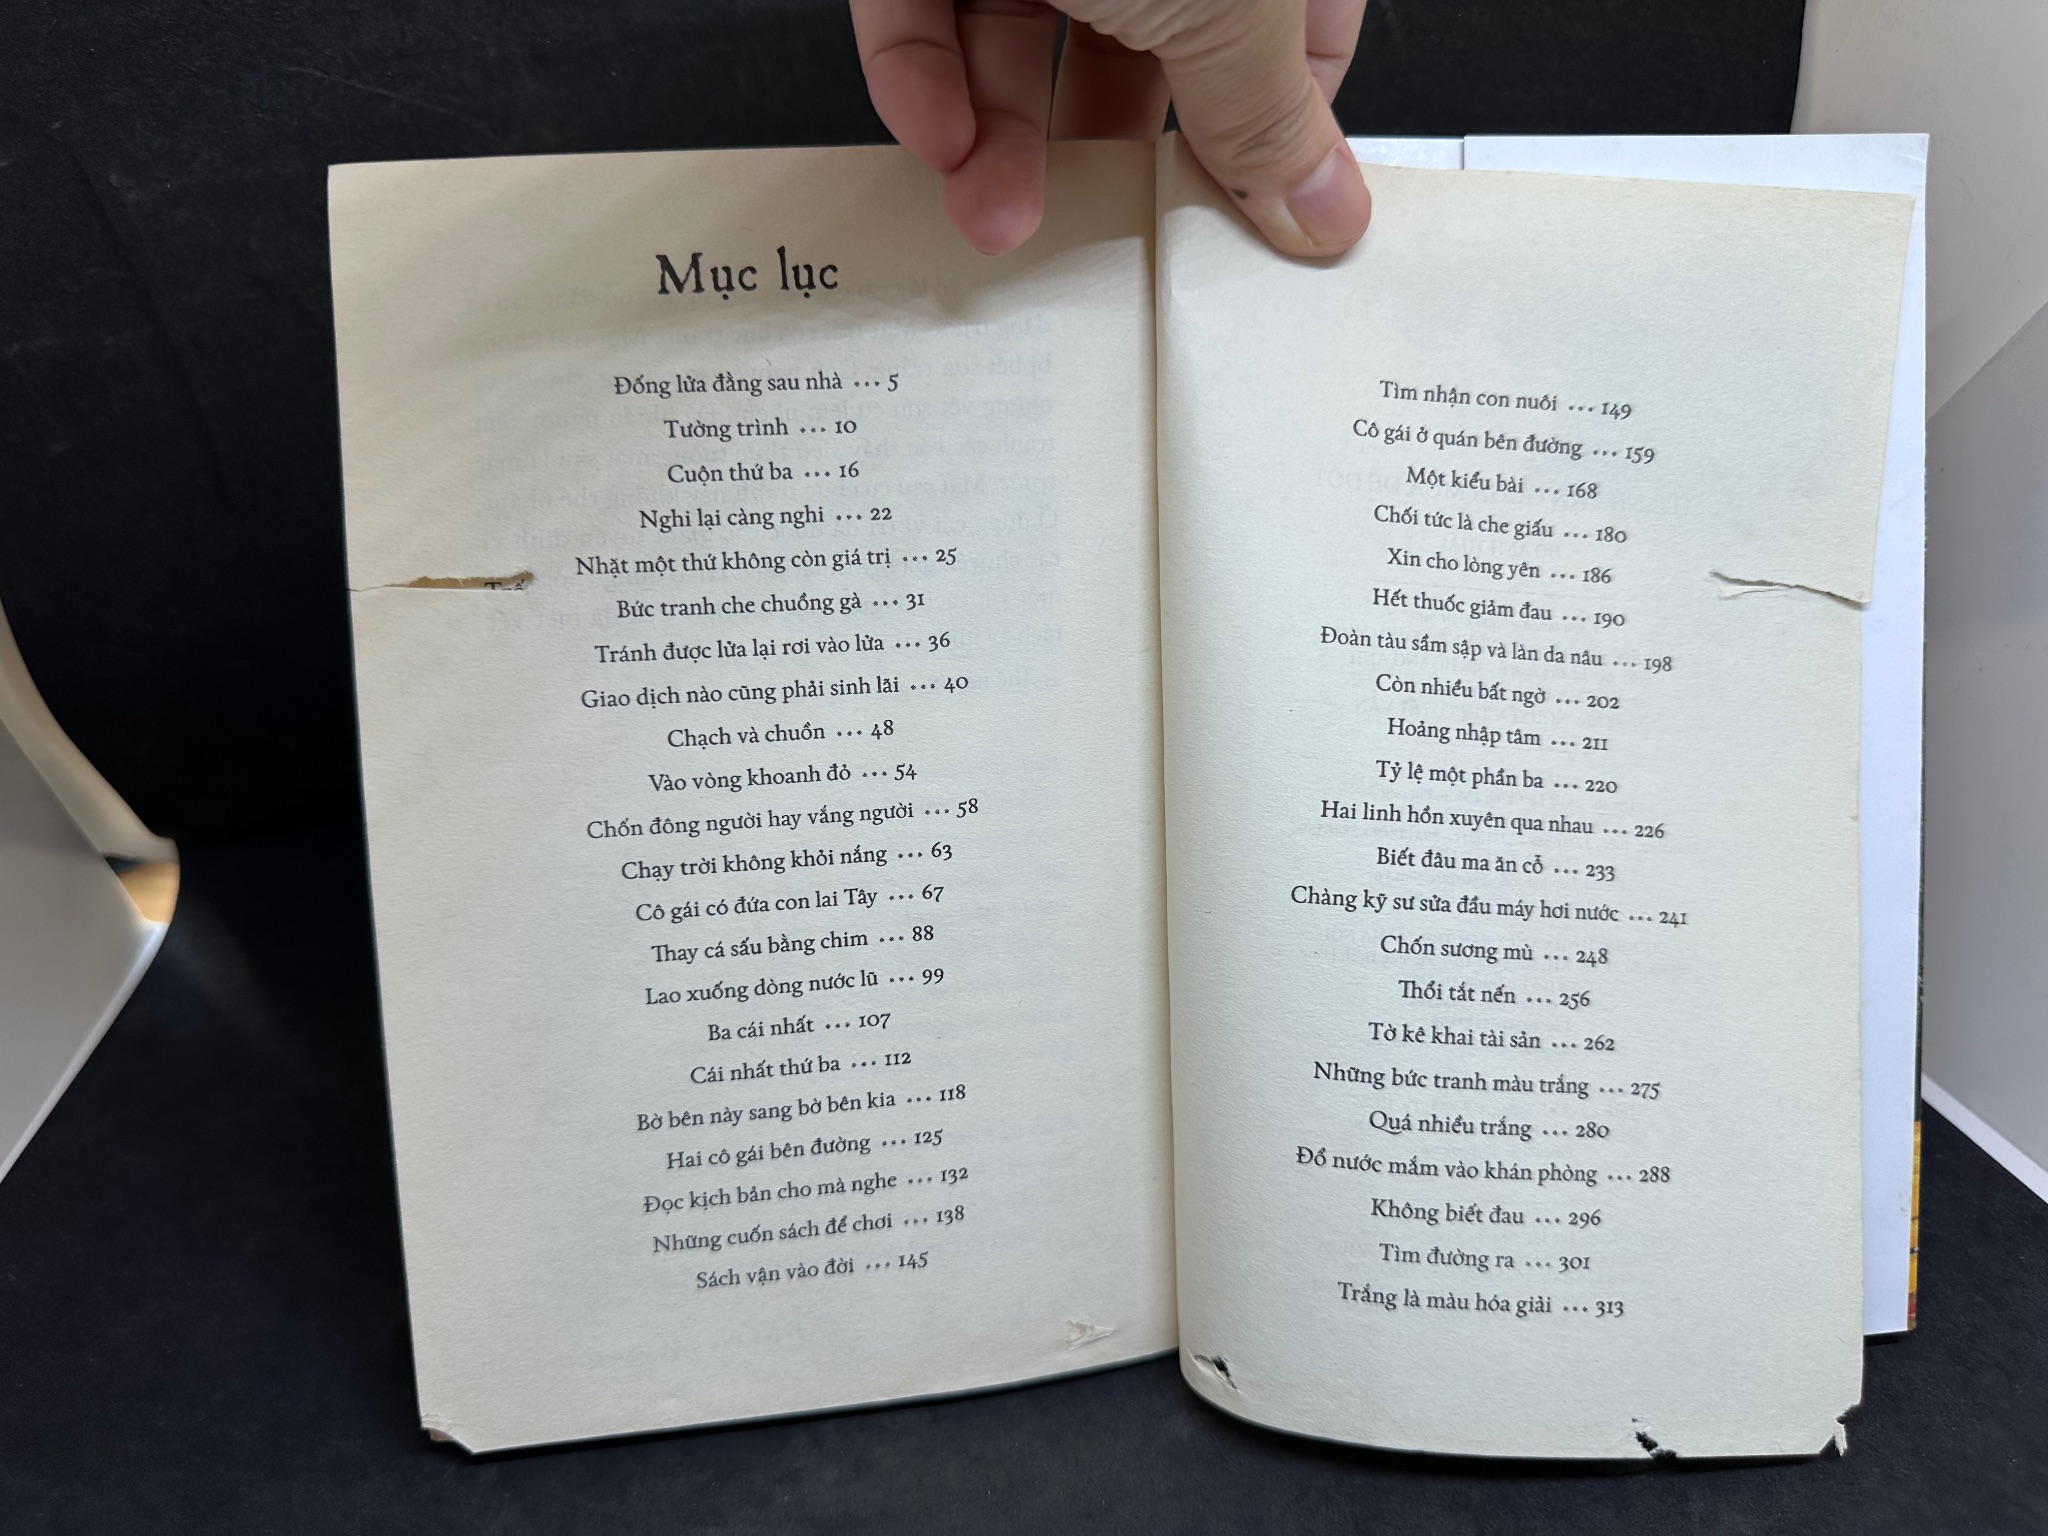 Mục lục
Đống lửa đằng sau nhà ... 5
Tường trình ... 10
Cuộn thứ ba ... 16
Nghi lại càng nghi ... 22
Nhặt một thứ không còn giá trị ... 25
Bức tranh che chuồng gà ... 31
Tránh được lửa lại rơi vào lửa ... 36
Giao dịch nào cũng phải sinh lãi ... 40
Chạch và chuồn ... 48
Vào vòng khoanh đỏ ... 54
Chốn đông người hay vắng người ... 58
Chạy trời không khỏi nắng ... 63
Cô gái có đứa con lai Tây ... 67
Thay cá sấu bằng chim ... 88
Lao xuống dòng nước lũ ... 99
Ba cái nhất ... 107
Cái nhất thứ ba ... 112
Bờ bên này sang bờ bên kia ... 118
Hai cô gái bên đường ... 125
Đọc kịch bản cho mà nghe ... 132
Những cuốn sách để chơi ... 138
Sách vận vào đời ... 145
Tìm nhận con nuôi ... 149
Cô gái ở quán bên đường ... 159
Một kiểu bài ... 168
Chối tức là che giấu ... 180
Xin cho lòng yên ... 186
Hết thuốc giảm đau ... 190
Đoàn tàu sầm sập và làn da nâu ... 198
Còn nhiều bất ngờ ... 202
Hoảng nhập tâm ... 211
Tỷ lệ một phần ba ... 220
Hai linh hồn xuyên qua nhau ... 226
Biết đâu ma ăn cỗ ... 233
Chàng kỹ sư sửa đầu máy hơi nước ... 241
Chốn sương mù ... 248
Thổi tắt nến ... 256
Tờ kê khai tài sản ... 262
Những bức tranh màu trắng ... 275
Quá nhiều trắng ... 280
Đổ nước mắm vào khán phòng ... 288
Không biết đau ... 296
Tìm đường ra ... 301
Trắng là màu hóa giải ... 313